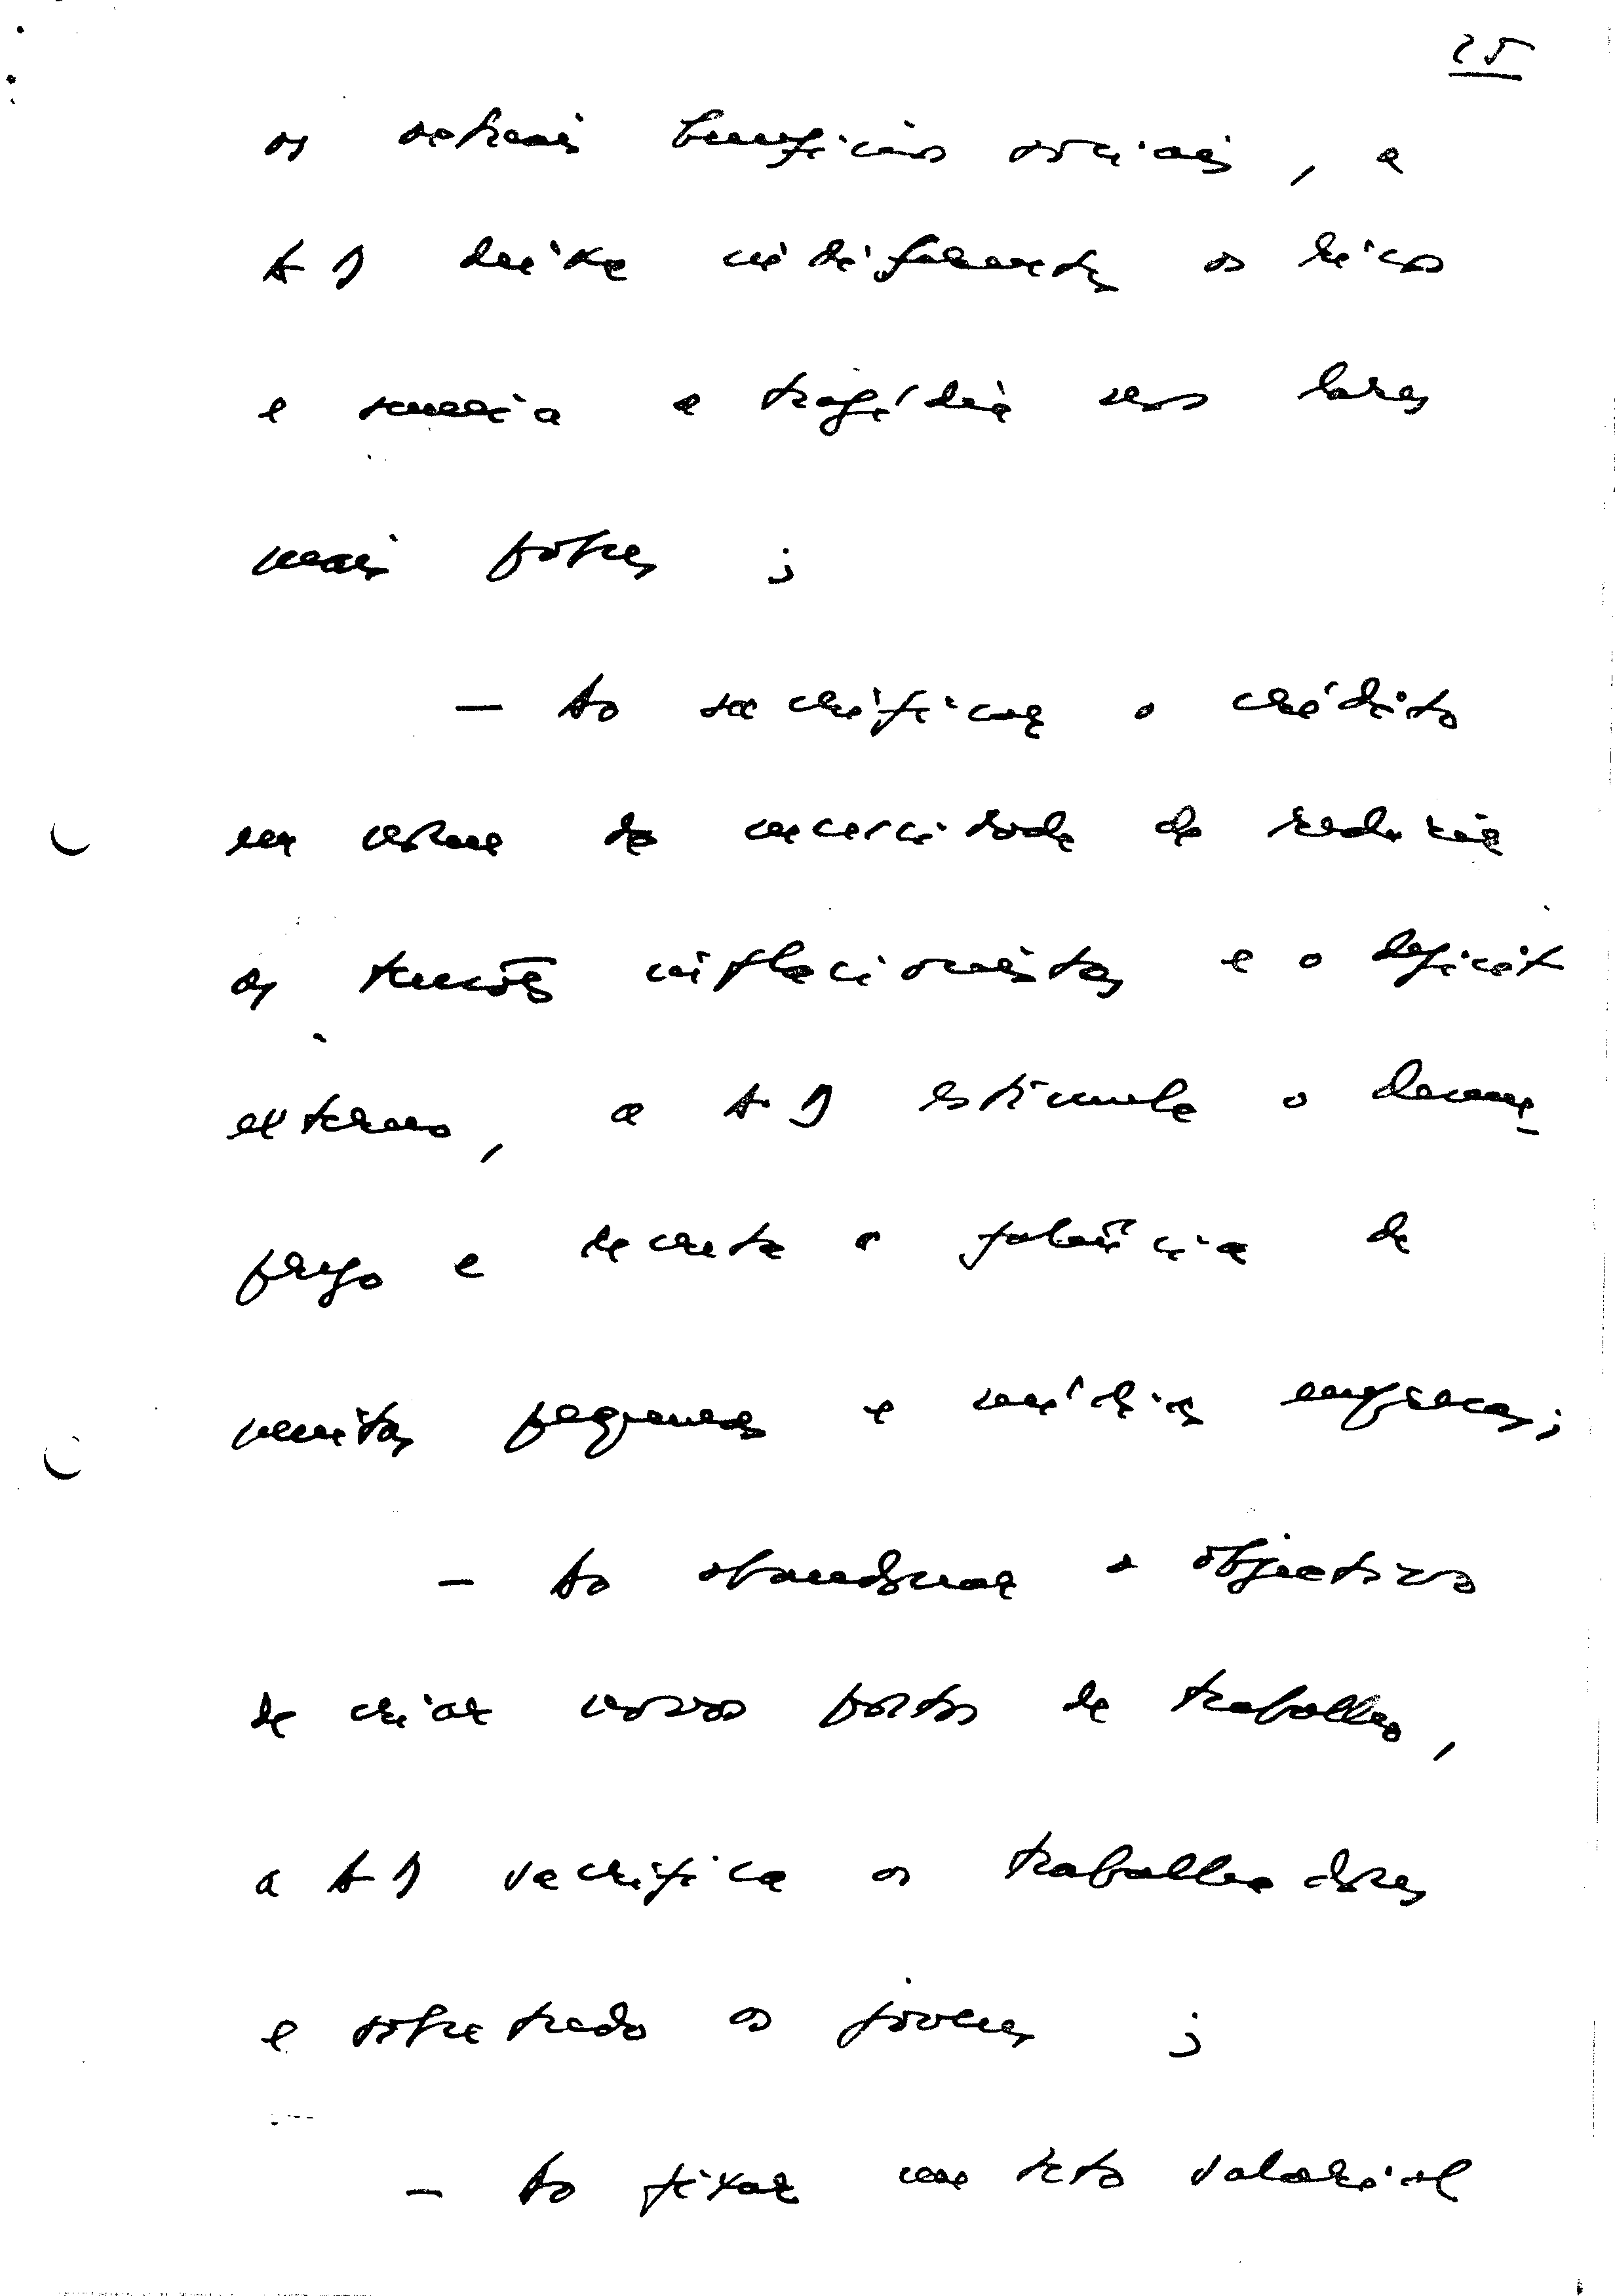 25
os demais benefícios sociais, a
AD deixa indiferentes os ricos
e semeia a tragédia nos lares
mais pobres;
— Ao sacrificar o crédito
em nome da necessidade de reduzir
as tensões inflacionistas e o deficit
externo, a AD estimula o desem-
prego e decreta a falência de
muitas pequenas e médias empresas;
— Ao abandonar o objectivo
de criar novos postos de trabalho,
a AD sacrifica os trabalhadores
e sobretudo os jovens;
— Ao fixar um teto salarial